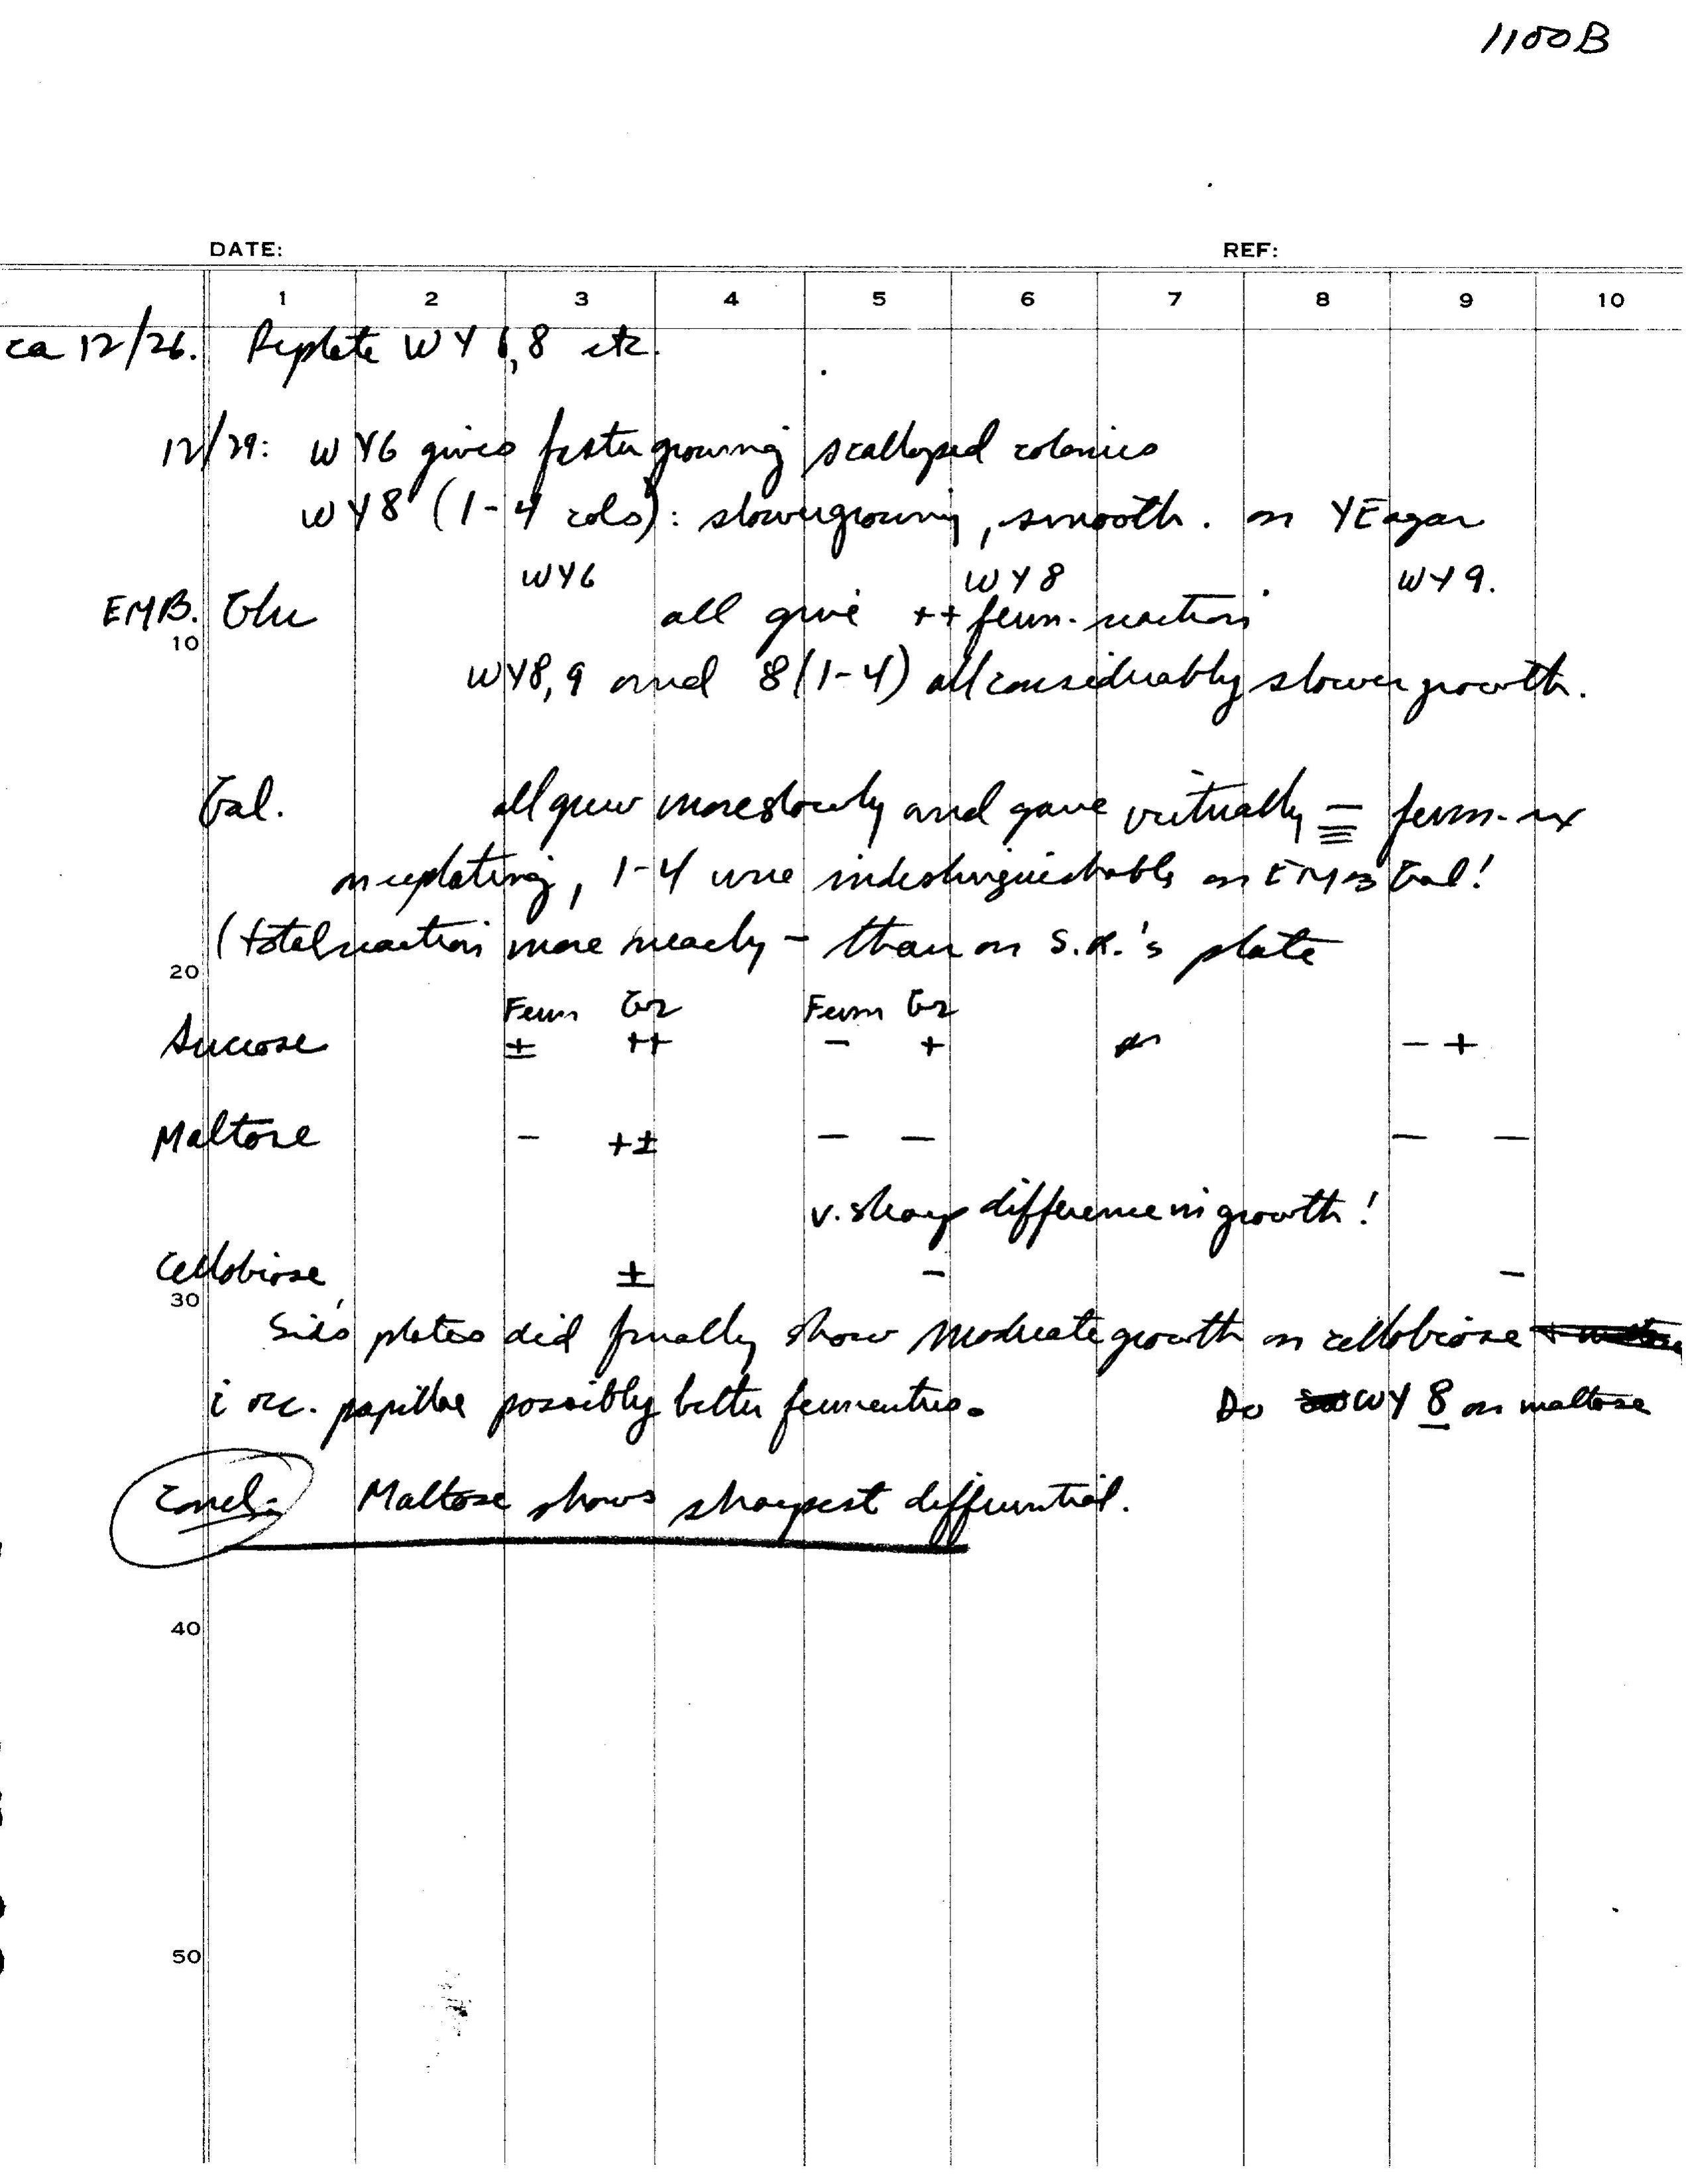 1100B
DATE: REF:
1 2 3 4 5 6 7 8 9 10
ca 12/26. Replate WY 6,8 etc.
12/29: WY6 gives faster growing scalloped colonies
WY8 (1-4 cols): slower growing, smooth. on YE agar
WY6 WY8 WY9.
EMB. Glu all give ++ ferm. reaction
10
WY8,9 and 8(1-4) all considerably slower growth.
Gal. all grew more slowly and gave virtually — ferm. rx
on replating, 1-4 were indistinguishable on EMB Gal!
(total reaction more nearly - than on S.R.'s plate
20
Ferm Gr Ferm Gr
Sucrose ± ++ - + - +
Maltose - +± - - - -
v. sharp difference in growth!
Cellobiose ± - -
30
Sid's plates did finally show moderate growth on cellobiose
c̄ occ. papillae possibly better fermenters. Do WY 8 on maltose
Concl: Maltose shows sharpest differential.
40
50